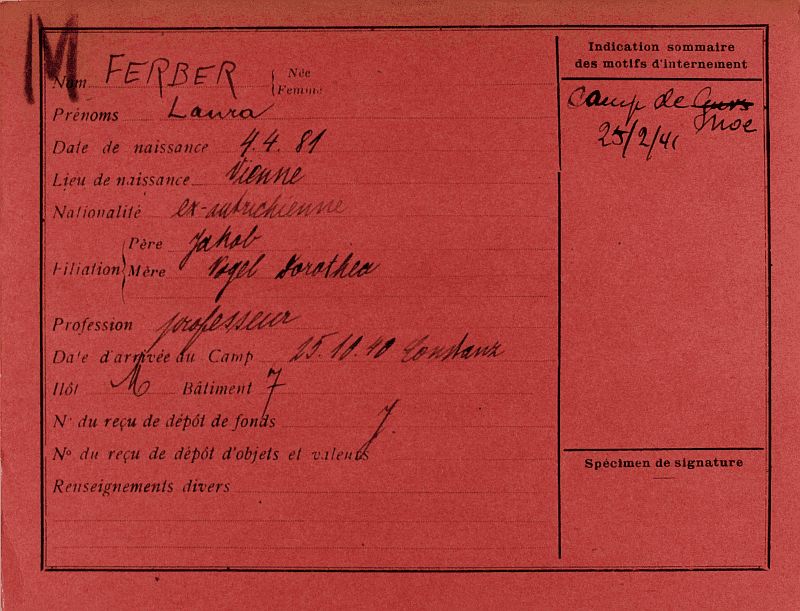 M
Nom FERBER { Née
Femme
Prénoms Laura
Date de naissance 4.4.81
Lieu de naissance Vienne
Nationalité ex-autrichienne
Filiation { Père Jakob
Mère Vogel Dorothea
Profession professeur
Date d'arrivée au Camp 25.10.40 Constanz
Ilôt M Bâtiment 7
N° du reçu de dépôt de fonds
J.
N° du reçu de dépôt d'objets et valeurs
Renseignements divers
Indication sommaire
des motifs d'internement
Camp de Gurs
Noe
25/2/41
Spécimen de signature